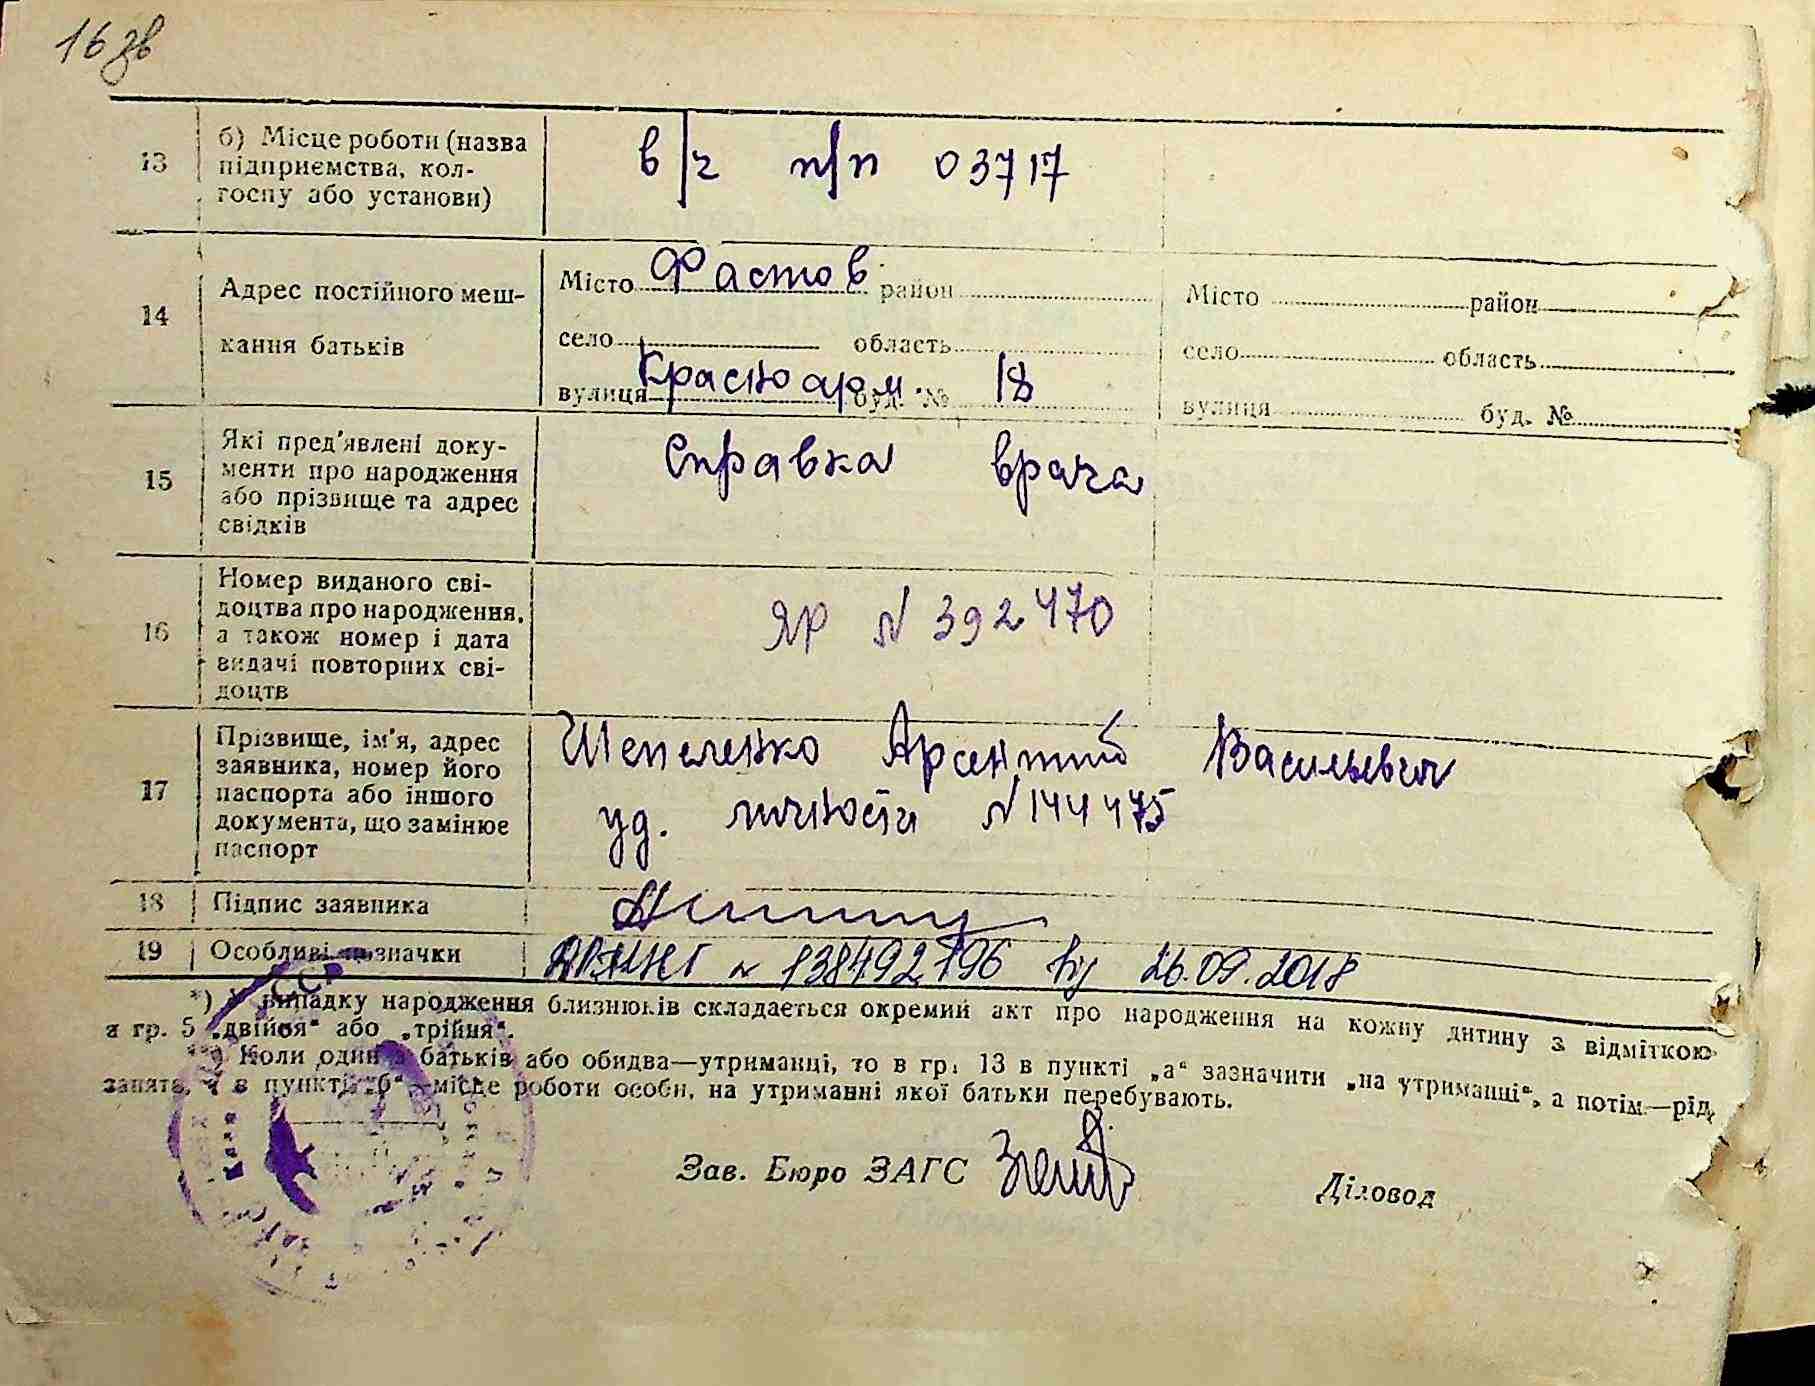 16 зв
13 б) Місце роботи (назва підприємства, кол-госпу або установи) в/ч п/п 03717
14 Адрес постійного меш-кання батьків
Місто Фастов район Місто район
село область село область
вулиця Красноарм буд. № 18 вулиця буд. №
15 Які пред'явлені доку-
менти про народження
або прізвище та адрес
свідків
Справка врача
16 Номер виданого сві-
доцтва про народження,
а також номер і дата
видачі повторних сві-
доцтв
ЯР N 392470
17 Прізвище, ім'я, адрес
заявника, номер його
паспорта або іншого
документа, що замінює
паспорт
Шепеленко Арсентий Васильевич
уд. личности N 144475
18 Підпис заявника
19 Особливі позначки N 138492796 від 26.09.2018
*) У випадку народження близнюків складається окремий акт про народження на кожну дитину з відміткою
в гр. 5 „двійня“ або „трійня“.
**) Коли один з батьків або обидва—утриманці, то в гр. 13 в пункті „а“ зазначити „на утриманні“, а потім—рід
занять, а в пункті „б“—місце роботи особи, на утриманні якої батьки перебувають.
Зав. Бюро ЗАГС Діловод